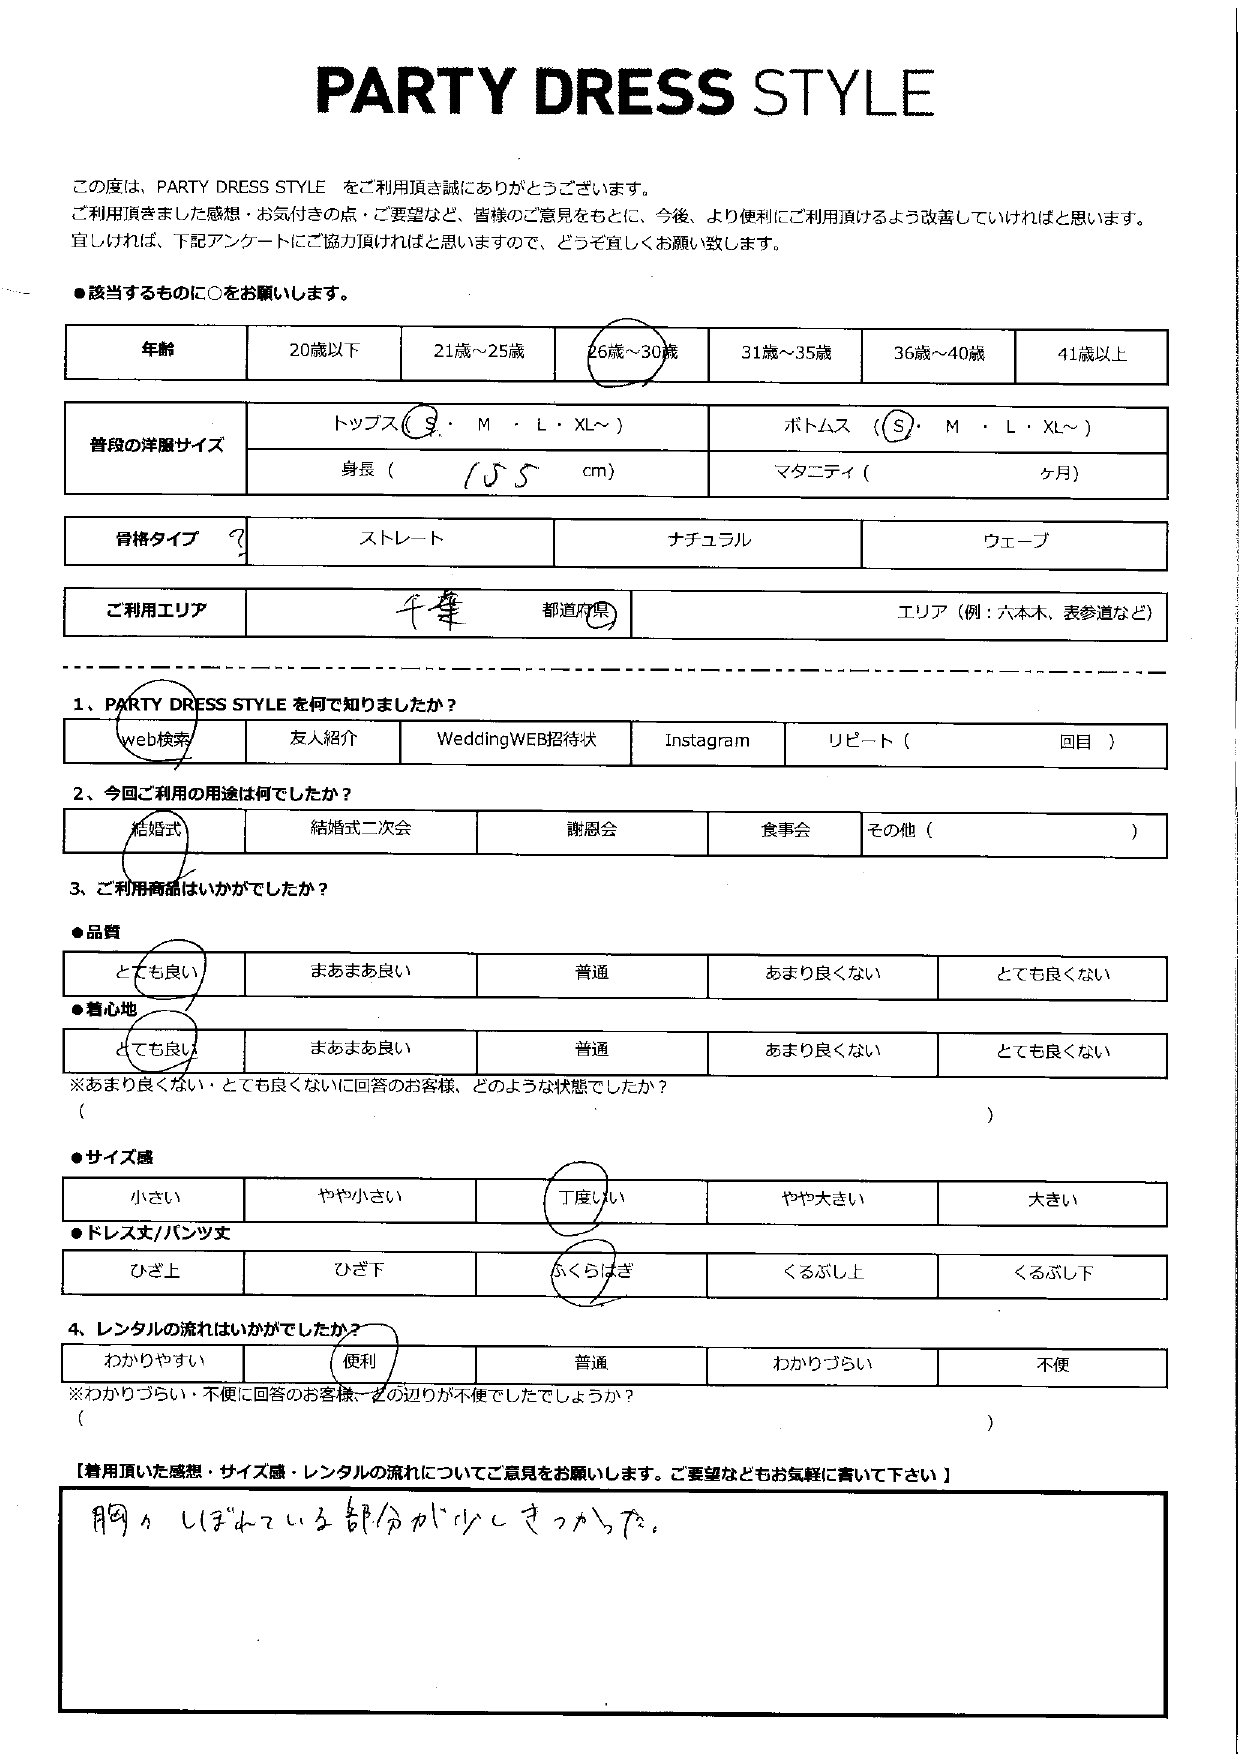 PARTY DRESS STYLE
この度は、PARTY DRESS STYLE　をご利用頂き誠にありがとうございます。
ご利用頂きました感想・お気付きの点・ご要望など、皆様のご意見をもとに、今後、より便利にご利用頂けるよう改善していければと思います。
宜しければ、下記アンケートにご協力頂ければと思いますので、どうぞ宜しくお願い致します。
●該当するものに○をお願いします。
年齢 20歳以下 21歳～25歳 26歳～30歳 31歳～35歳 36歳～40歳 41歳以上
普段の洋服サイズ トップス( S ・ M ・ L ・ XL～ ) ボトムス ( S ・ M ・ L ・ XL～ )
身長 ( 155 cm) マタニティ ( ヶ月)
骨格タイプ ? ストレート ナチュラル ウェーブ
ご利用エリア 千葉 都道府県 エリア（例：六本木、表参道など）
1、PARTY DRESS STYLE を何で知りましたか？
web検索 友人紹介 WeddingWEB招待状 Instagram リピート ( 回目 )
2、今回ご利用の用途は何でしたか？
結婚式 結婚式二次会 謝恩会 食事会 その他 ( )
3、ご利用商品はいかがでしたか？
●品質
とても良い まあまあ良い 普通 あまり良くない とても良くない
●着心地
とても良い まあまあ良い 普通 あまり良くない とても良くない
※あまり良くない・とても良くないに回答のお客様、どのような状態でしたか？
( )
●サイズ感
小さい やや小さい 丁度いい やや大きい 大きい
●ドレス丈/パンツ丈
ひざ上 ひざ下 ふくらはぎ くるぶし上 くるぶし下
4、レンタルの流れはいかがでしたか？
わかりやすい 便利 普通 わかりづらい 不便
※わかりづらい・不便に回答のお客様、どの辺りが不便でしたでしょうか？
( )
【着用頂いた感想・サイズ感・レンタルの流れについてご意見をお願いします。ご要望などもお気軽に書いて下さい 】
胸の しぼれている部分が少しきつかった。